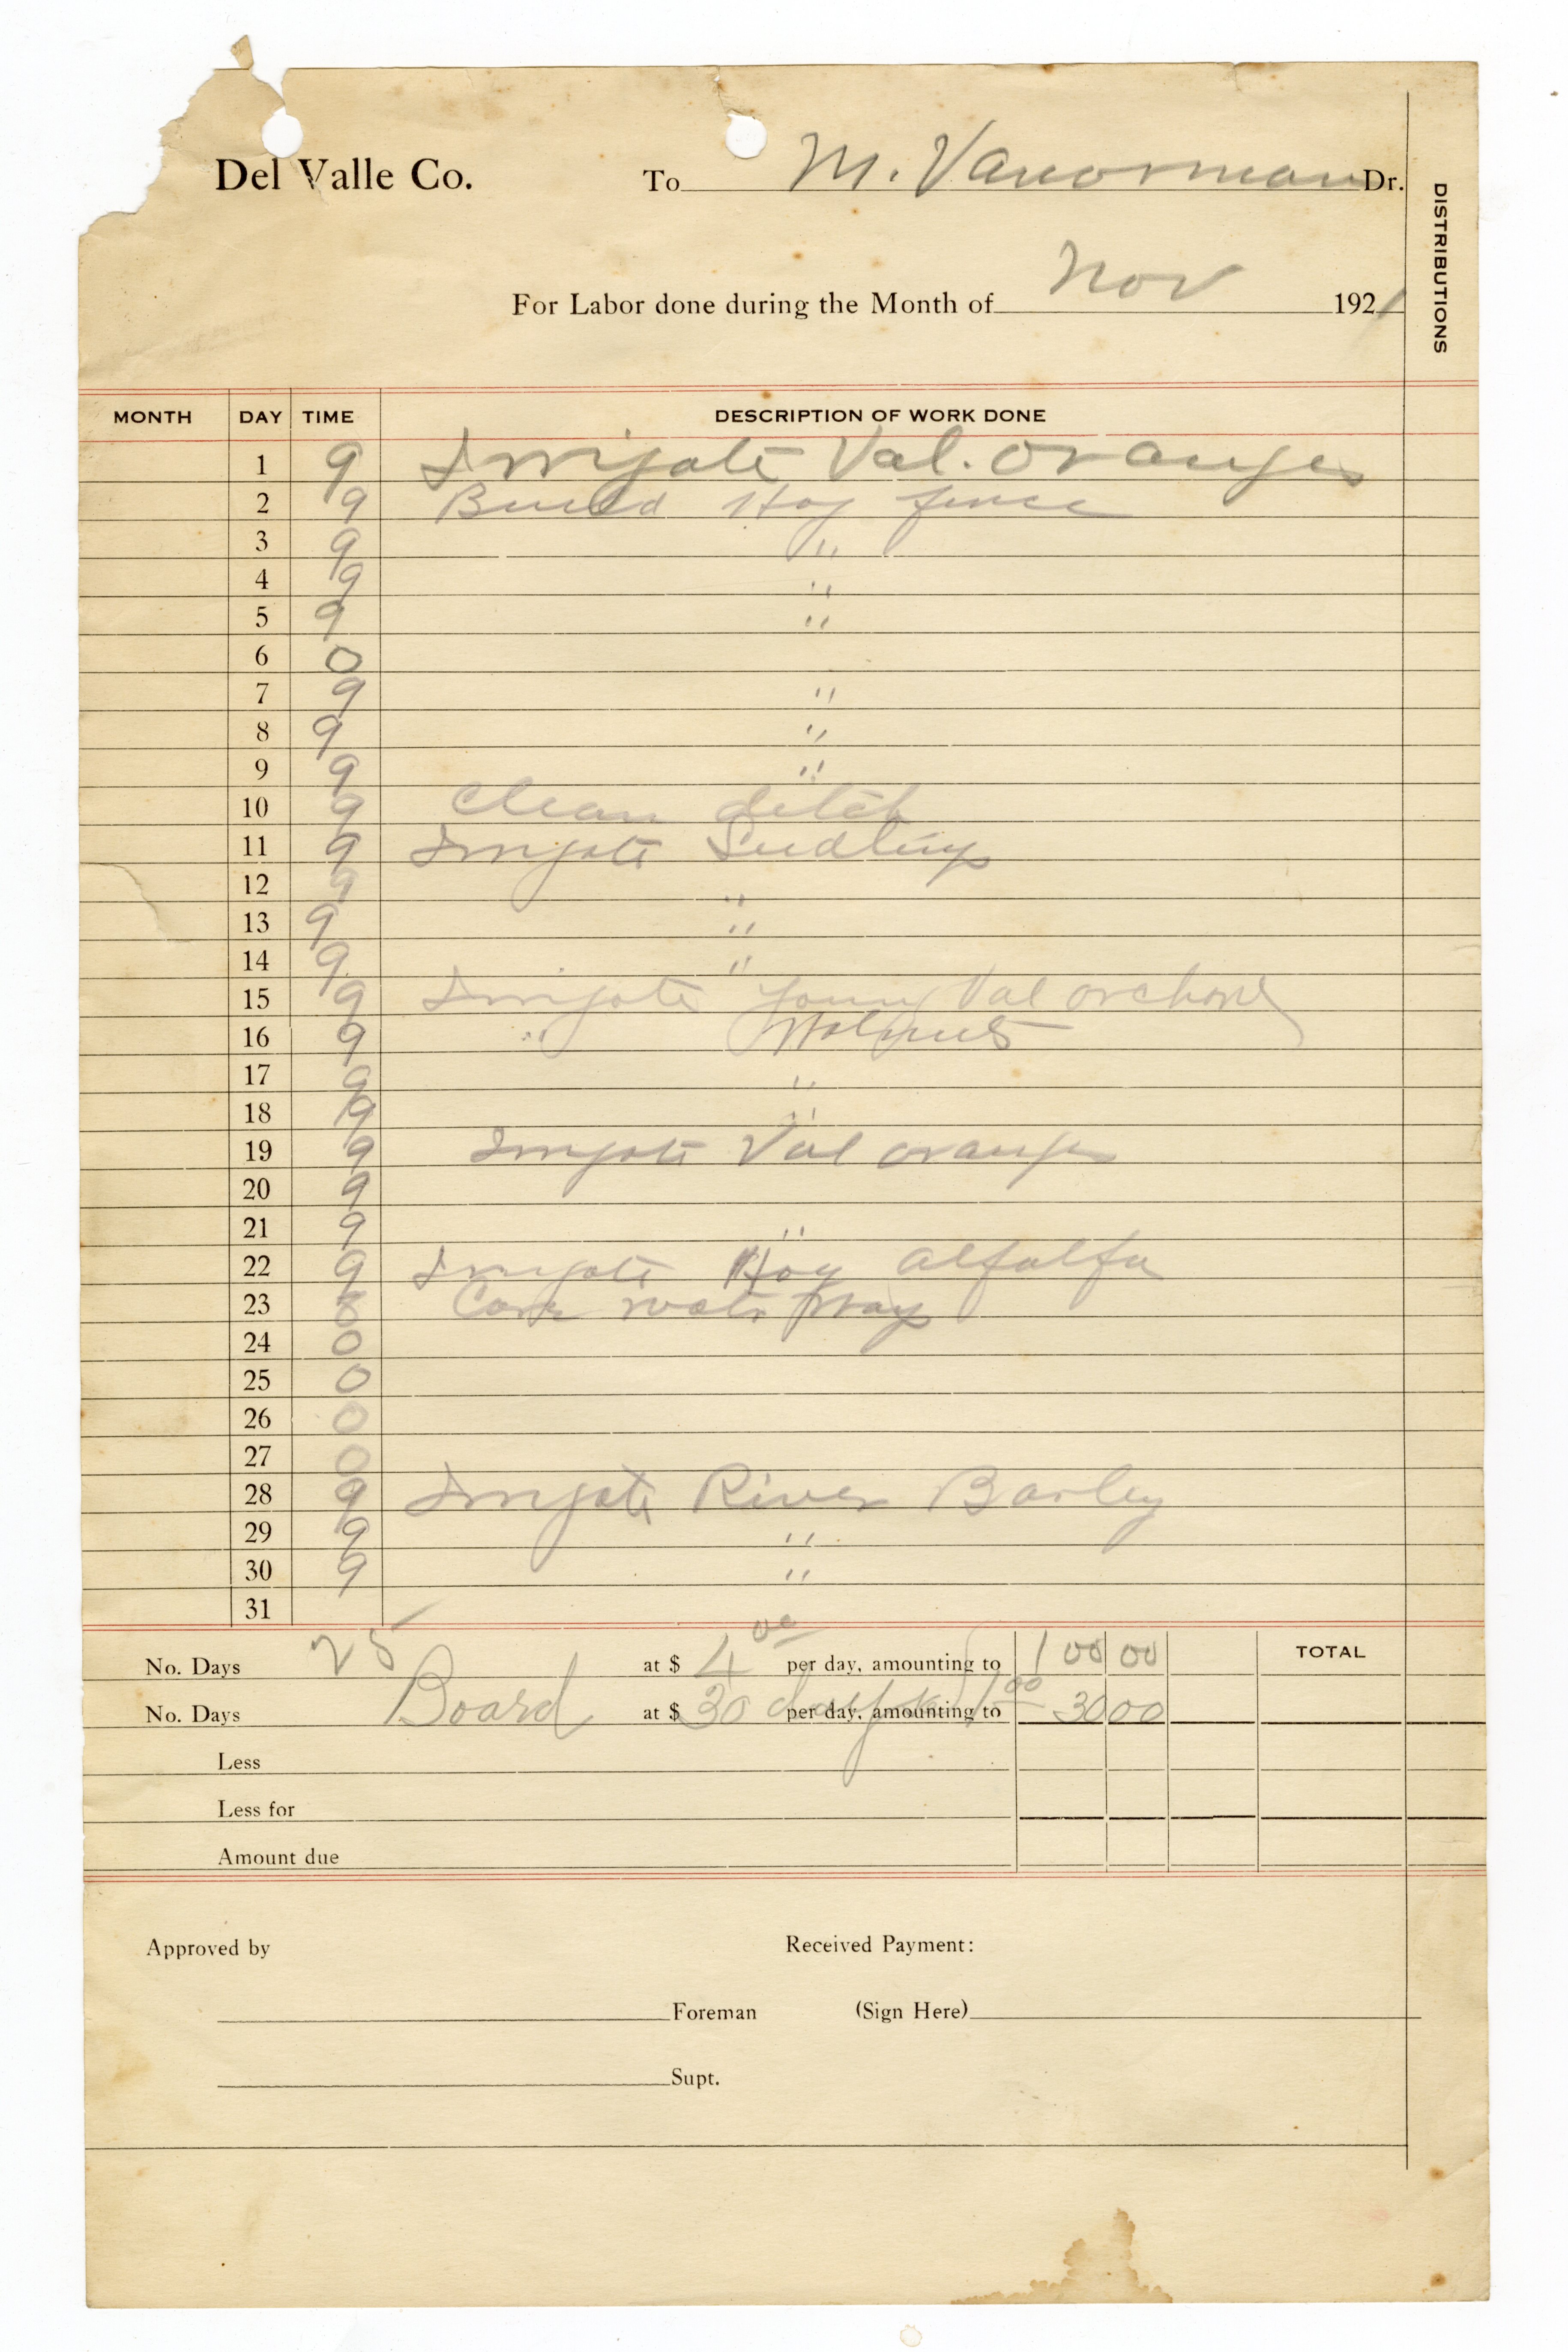 Del Valle Co. To M. Vanorman Dr.
DISTRIBUTIONS
For Labor done during the Month of Nov 1921
MONTH DAY TIME DESCRIPTION OF WORK DONE
1 9 Irrigate Val. Oranges
2 9 Build Hog fence
3 9 "
4 9 "
5 9 "
6 0
7 9 "
8 9 "
9 9 "
10 9 Clean ditch
11 9 Irrigate Seedlings
12 9 "
13 9 "
14 9 "
15 9 Irrigate young Val orchard
16 9 " Walnuts
17 9 "
18 9 "
19 9 Irrigate Val oranges
20 9
21 9 "
22 9 Irrigate Hog alfalfa
23 8 water way
24 0
25 0
26 0
27 0
28 9 Irrigate River Barley
29 9 "
30 9 "
31
No. Days 25 at $ 4 00 per day, amounting to 100 00 TOTAL
No. Days Board at $ 30 days at 1 00 per day, amounting to 30 00
Less
Less for
Amount due
Approved by Received Payment:
Foreman (Sign Here)
Supt.